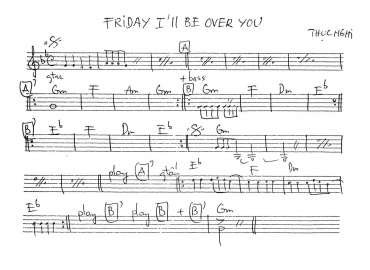 FRIDAY I'LL BE OVER YOU
THỤC NGHI
A
+ bass
A' Gm F Am Gm B Gm F Dm Eb
B' Eb F Dm Eb Gm
play A' Eb F Dm
Eb play B' play B + B' Gm